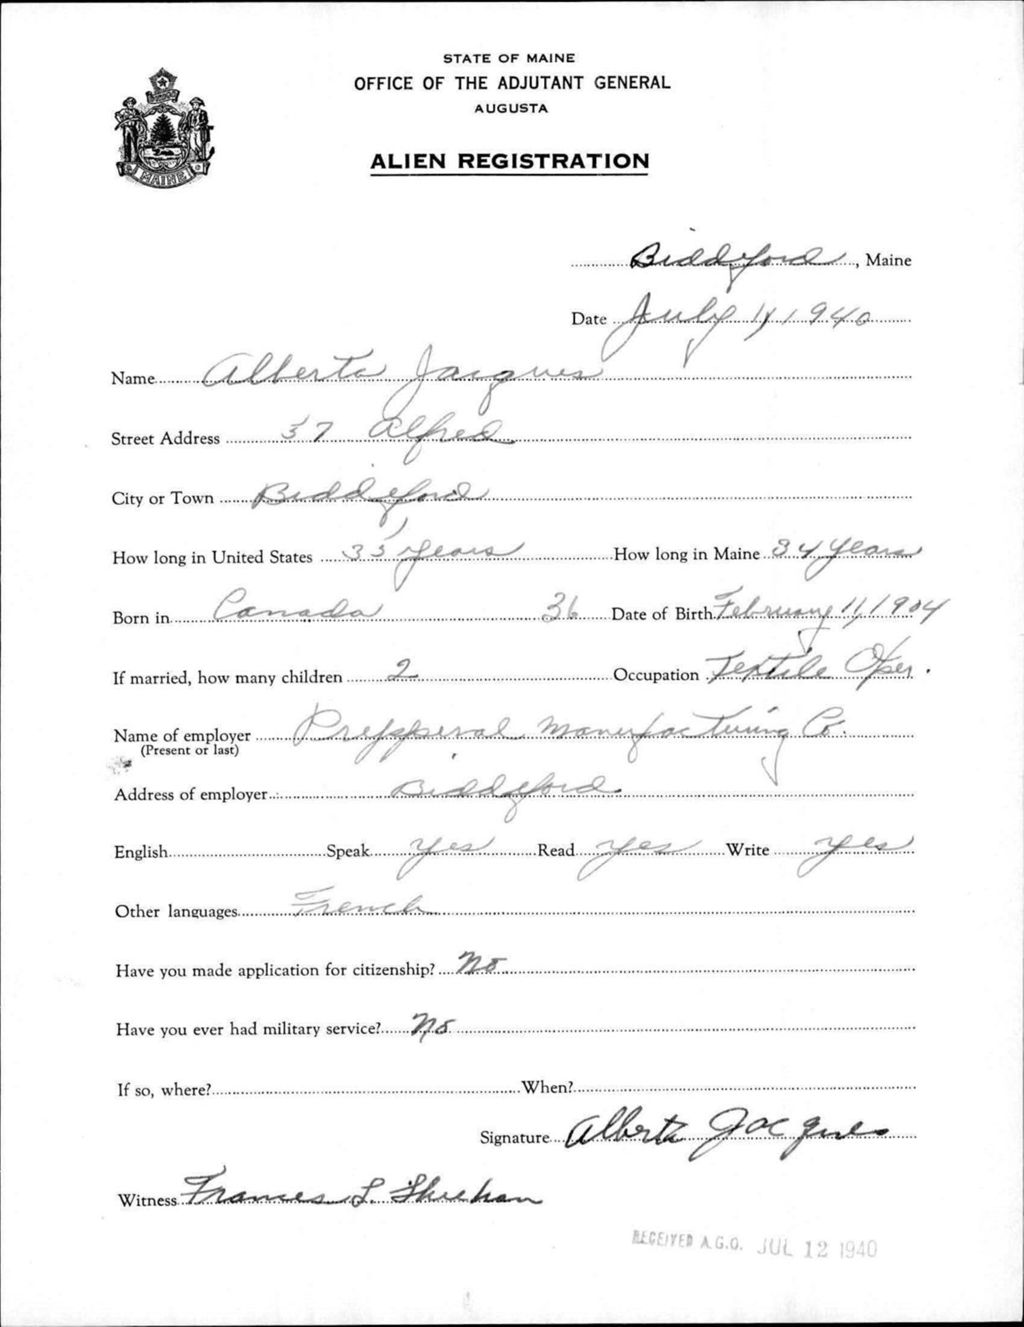 STATE OF MAINE
OFFICE OF THE ADJUTANT GENERAL
AUGUSTA
ALIEN REGISTRATION
MAINE
Biddeford, Maine
Date July 11, 1940
Name Alberta Jacques
Street Address 37 Alfred
City or Town Biddeford
How long in United States 35 years How long in Maine 34 years
Born in Canada 36 Date of Birth February 11, 1904
If married, how many children 2 Occupation Textile Oper.
Name of employer Manufacturing Co.
(Present or last)
Address of employer Biddeford
English Speak yes Read yes Write yes
Other languages French
Have you made application for citizenship? No
Have you ever had military service? No
If so, where? When?
Signature Alberta Jacques
Witness Frances L. Sheehan
RECEIVED A.G.O. JUL 12 1940